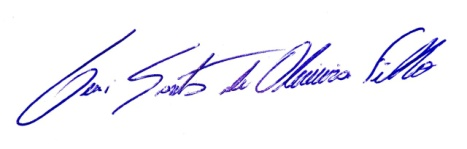 Santos de Oliveira Filho